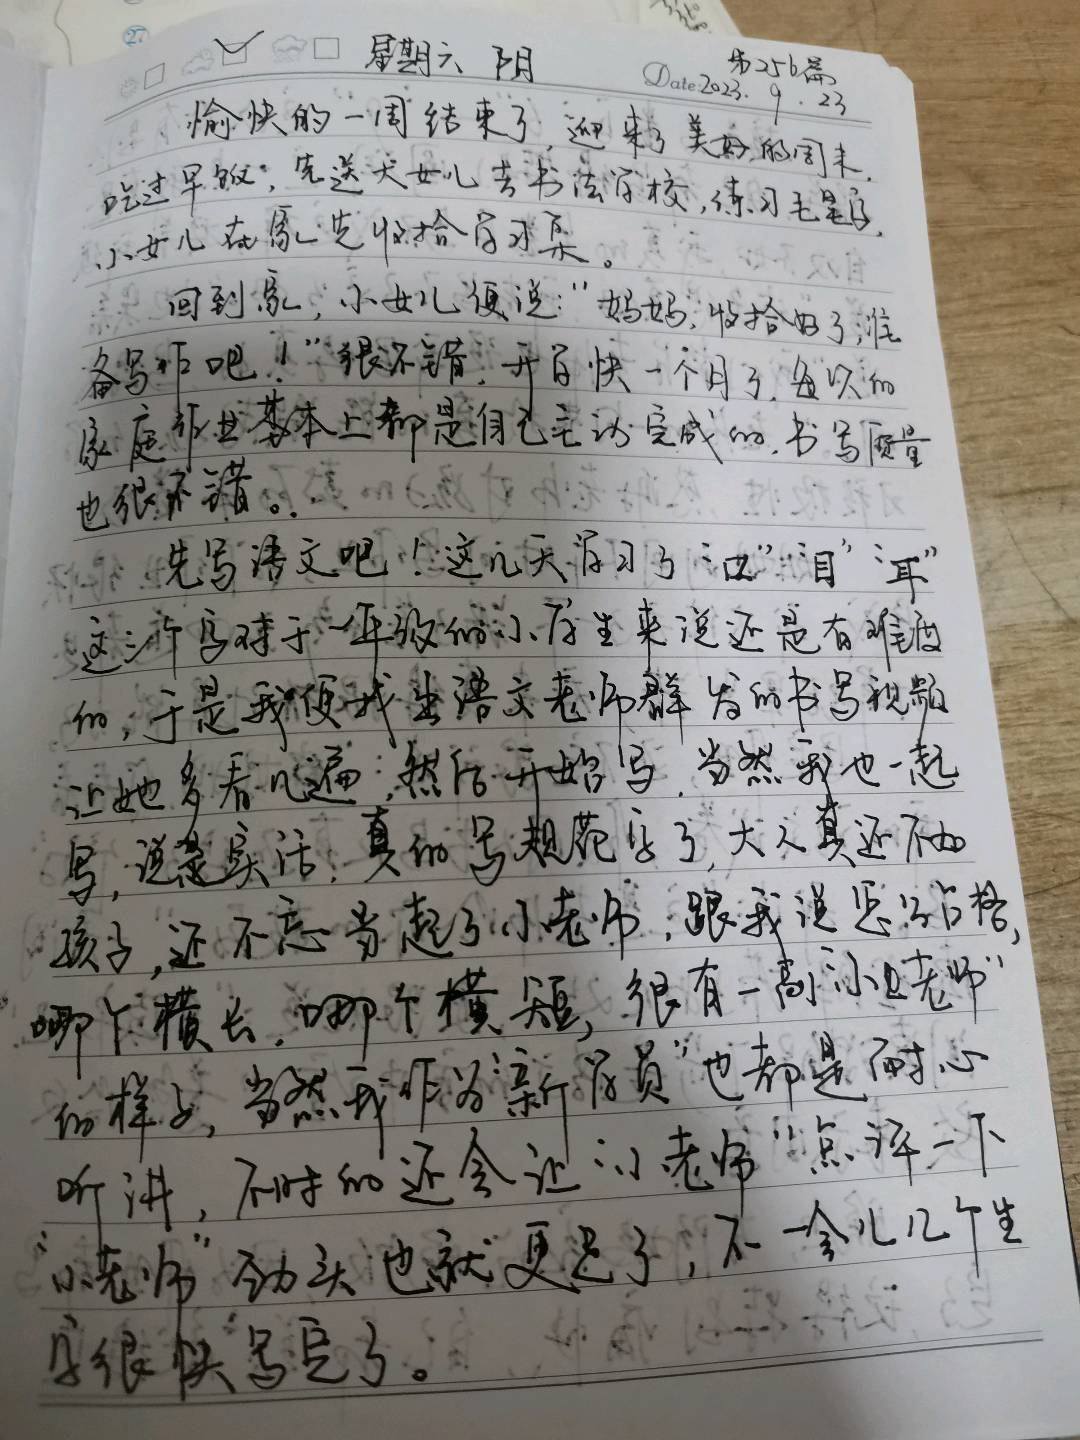 ㉗
星期六 阴
第256篇
Date 2023.9.23
愉快的一周结束了,迎来了美好的周末,
吃过早饭,先送大女儿去书法学校,练习毛笔字,
小女儿在家先收拾学习桌。
回到家,小女儿便说:"妈妈,收拾好了,准
备写作吧!"很不错,开学快一个月了,每次的
家庭作业基本上都是自己主动完成的,书写质量
也很不错。
先写语文吧!这几天学习了"口""目""耳"
这三个字对于一年级的小学生来说还是有难度
的,于是我便找出语文老师群发的书写视频
让她多看几遍,然后开始写,当然我也一起
写,说是实话,真的写规范字了,大人真还不如
孩子,还不忘当起了小老师,跟我说怎么占格,
哪个横长,哪个横短,很有一副"小老师"
的样子,当然我作为"新学员"也都是耐心
听讲,不时的还会让"小老师"点评一下
"小老师"劲头也就更足了,不一会儿几个生
字很快写完了。